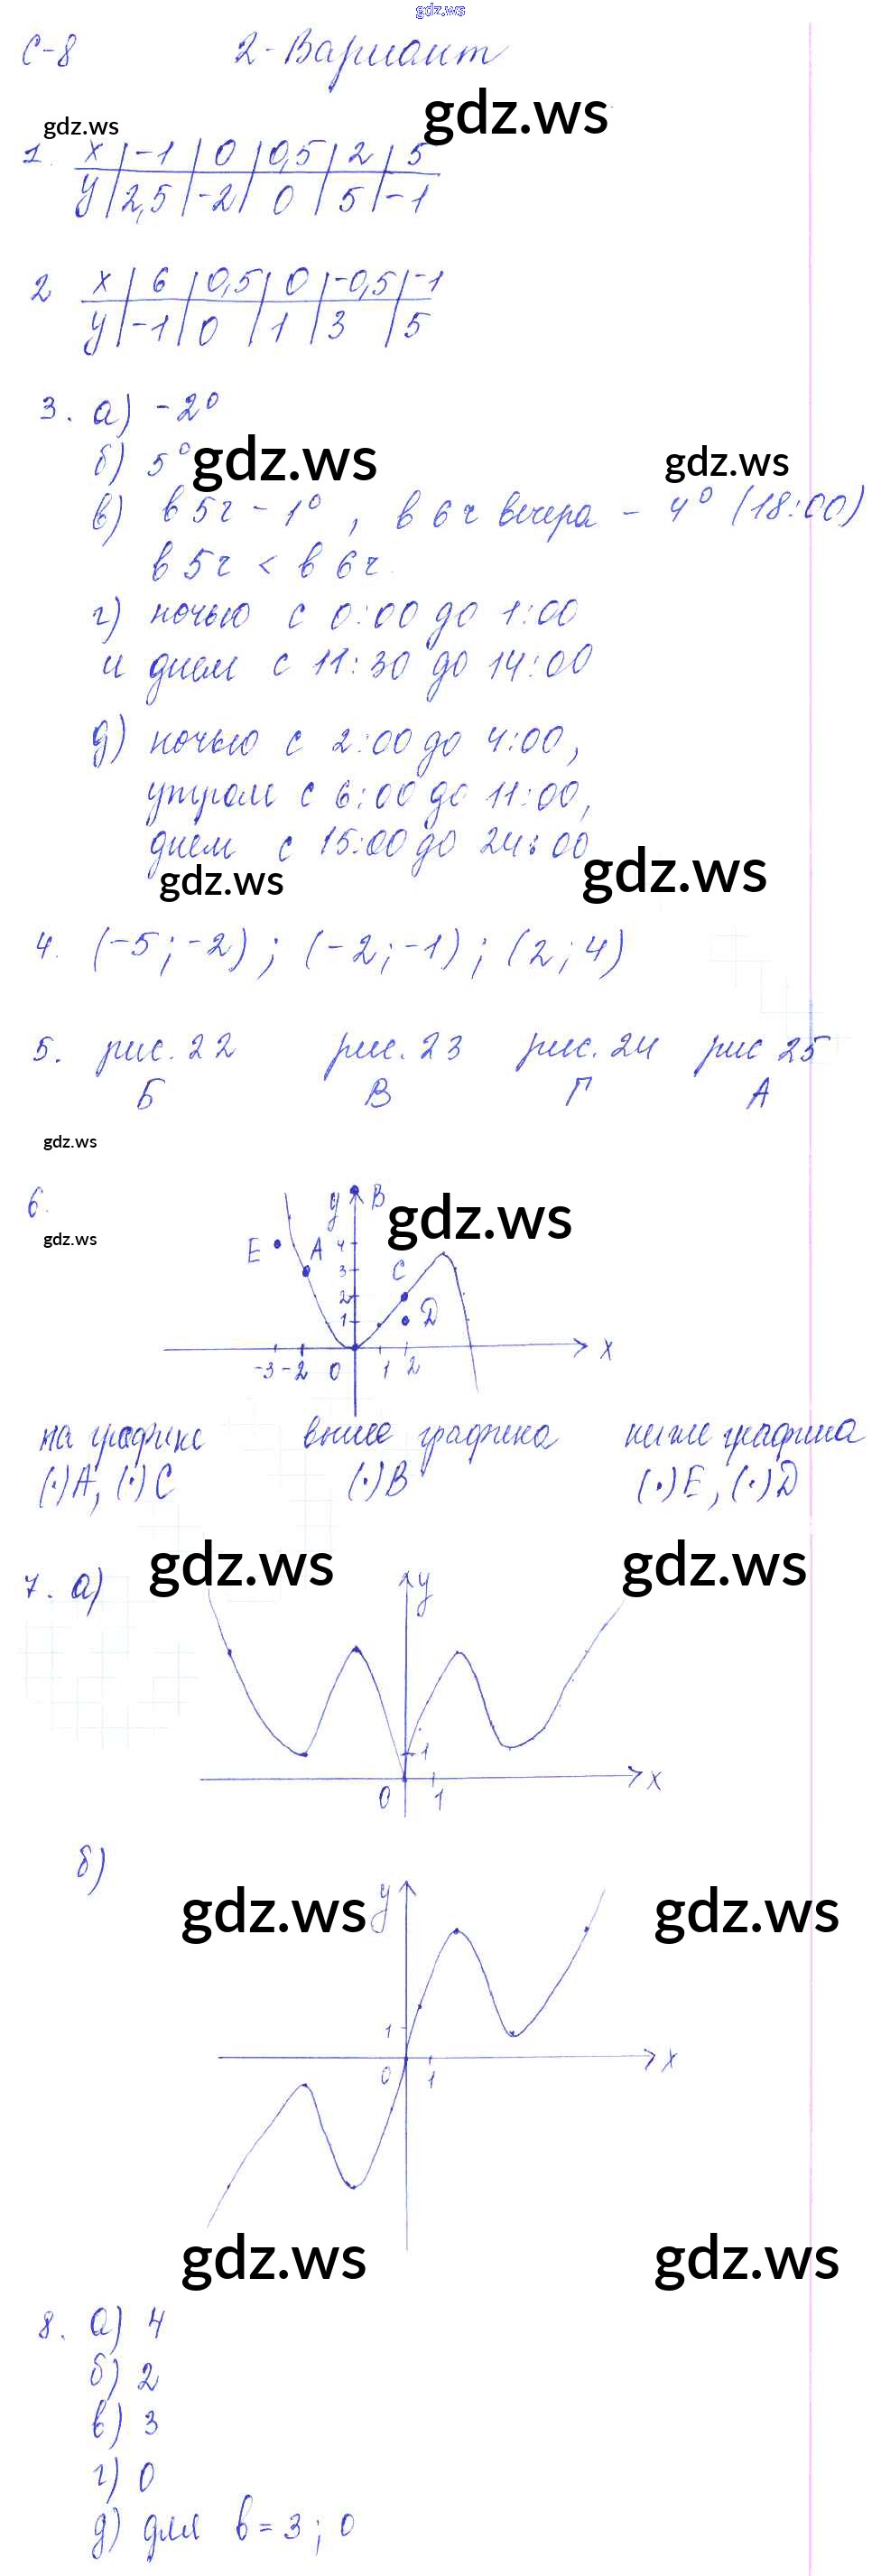 gdz.ws
С-8 2-Вариант
gdz.ws
gdz.ws
1. x | -1 | 0 | 0,5 | 2 | 5
y | 2,5 | -2 | 0 | 5 | -1
2 x | 6 | 0,5 | 0 | -0,5 | -1
y | -1 | 0 | 1 | 3 | 5
3. а) -2°
б) 5°
gdz.ws
gdz.ws
в) в 5г - 1°, в 6 г вечера - 4° (18:00)
в 5г < в 6г
г) ночью с 0:00 до 1:00
и днем с 11:30 до 14:00
д) ночью с 2:00 до 4:00,
утром с 6:00 до 11:00,
днем с 15:00 до 24:00
gdz.ws
gdz.ws
4. (-5; -2); (-2; -1); (2; 4)
5. рис. 22 рис. 23 рис. 24 рис 25
Б В Г А
gdz.ws
6.
y B
gdz.ws
gdz.ws
E A 4
3 C
2
1 D
x
-3 -2 0 1 2
на графике выше графика ниже графика
(·)A, (·)C (·)B (·)E, (·)D
gdz.ws
gdz.ws
7. а)
y
1
x
0 1
б)
gdz.ws
y
gdz.ws
1
x
0 1
gdz.ws
gdz.ws
8. а) 4
б) 2
в) 3
г) 0
д) для b = 3; 0